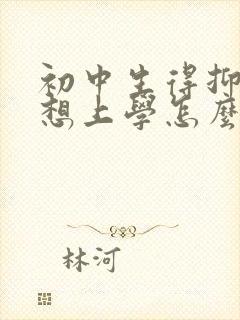 初中生得抑
想上學怎麼
林河